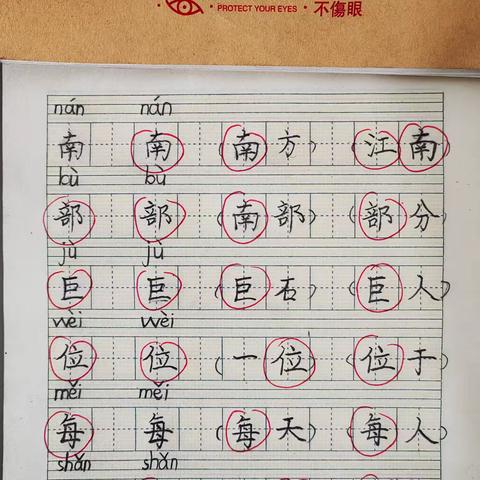 · PROTECT YOUR EYES · 不傷眼
nán nán
南 南 (南方) (江南)
bù bù
部 部 (南部) (部分)
jù jù
巨 巨 (巨石) (巨人)
wèi wèi
位 位 (一位) (位于)
měi měi
每 每 (每天) (每人)
shǎn shǎn